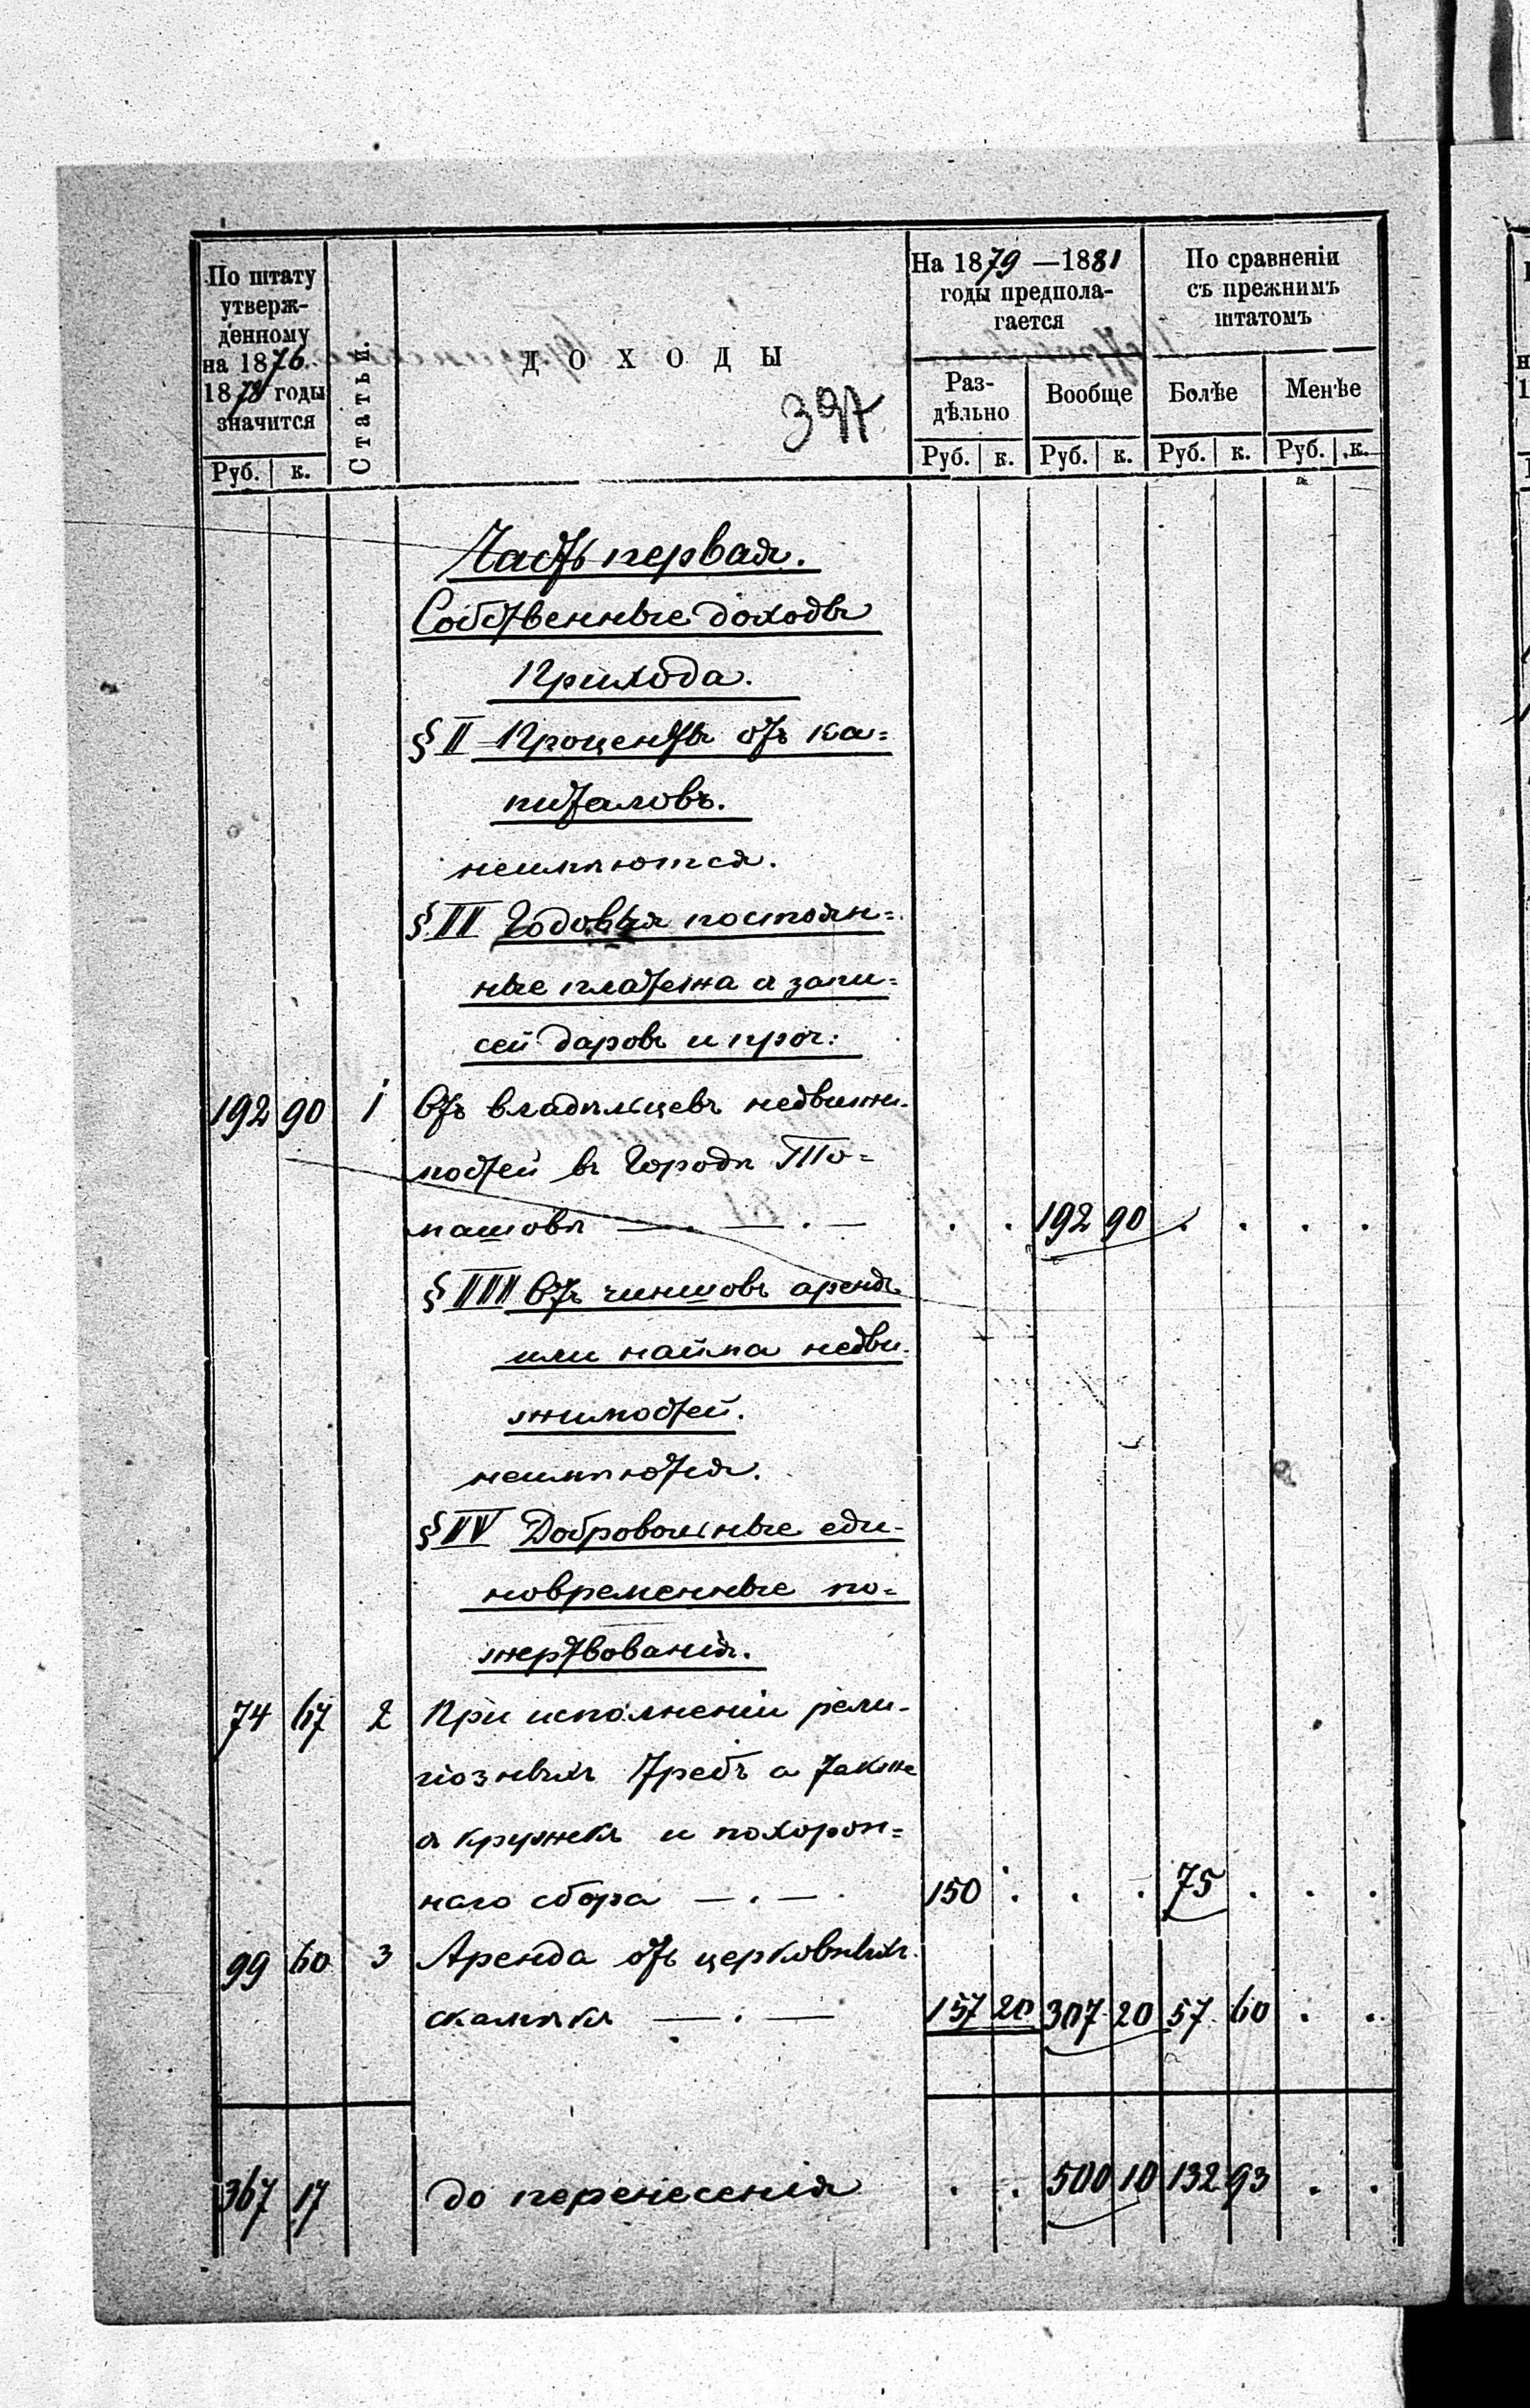 По штату
утверж-
денному
на 1876
1878 годы
значится
Статьи.
ДОХОДЫ
397
На 1879 —1881
годы предпола-
гается
По сравненіи
съ прежнимъ
штатомъ
Раз-
дѣльно
Вообще
Болѣе
Менѣе
Руб. к.
Руб. к. Руб. к. Руб. к. Руб. к.
Часть первая.
Собственные доходы
Прихода.
§ II Проценты отъ ка=
питаловъ.
неимѣются.
§ III Годовыя постоян=
ные платежа а запи=
сей даровъ и проч:
192 90 1 Отъ владѣльцевъ недвижи-
мостей въ Городѣ То=
машовѣ — . — . — . . 192 90 . . . .
§ IIII Отъ чиншовъ арендъ
или найма недви-
жимостей.
неимѣются.
§ IV Добровольные еди-
новременные по=
жертвованія.
74 67 2 При исполненіи рели-
гіозныхъ требъ а также
а кружекъ и похорон=
наго сбора — . — . 150 . . . 75 . . .
99 60 3 Аренда отъ церковныхъ
скамѣкъ — . — 157 20 307 20 57 60 . .
367 17 до перенесенія . . 500 10 132 93 . .